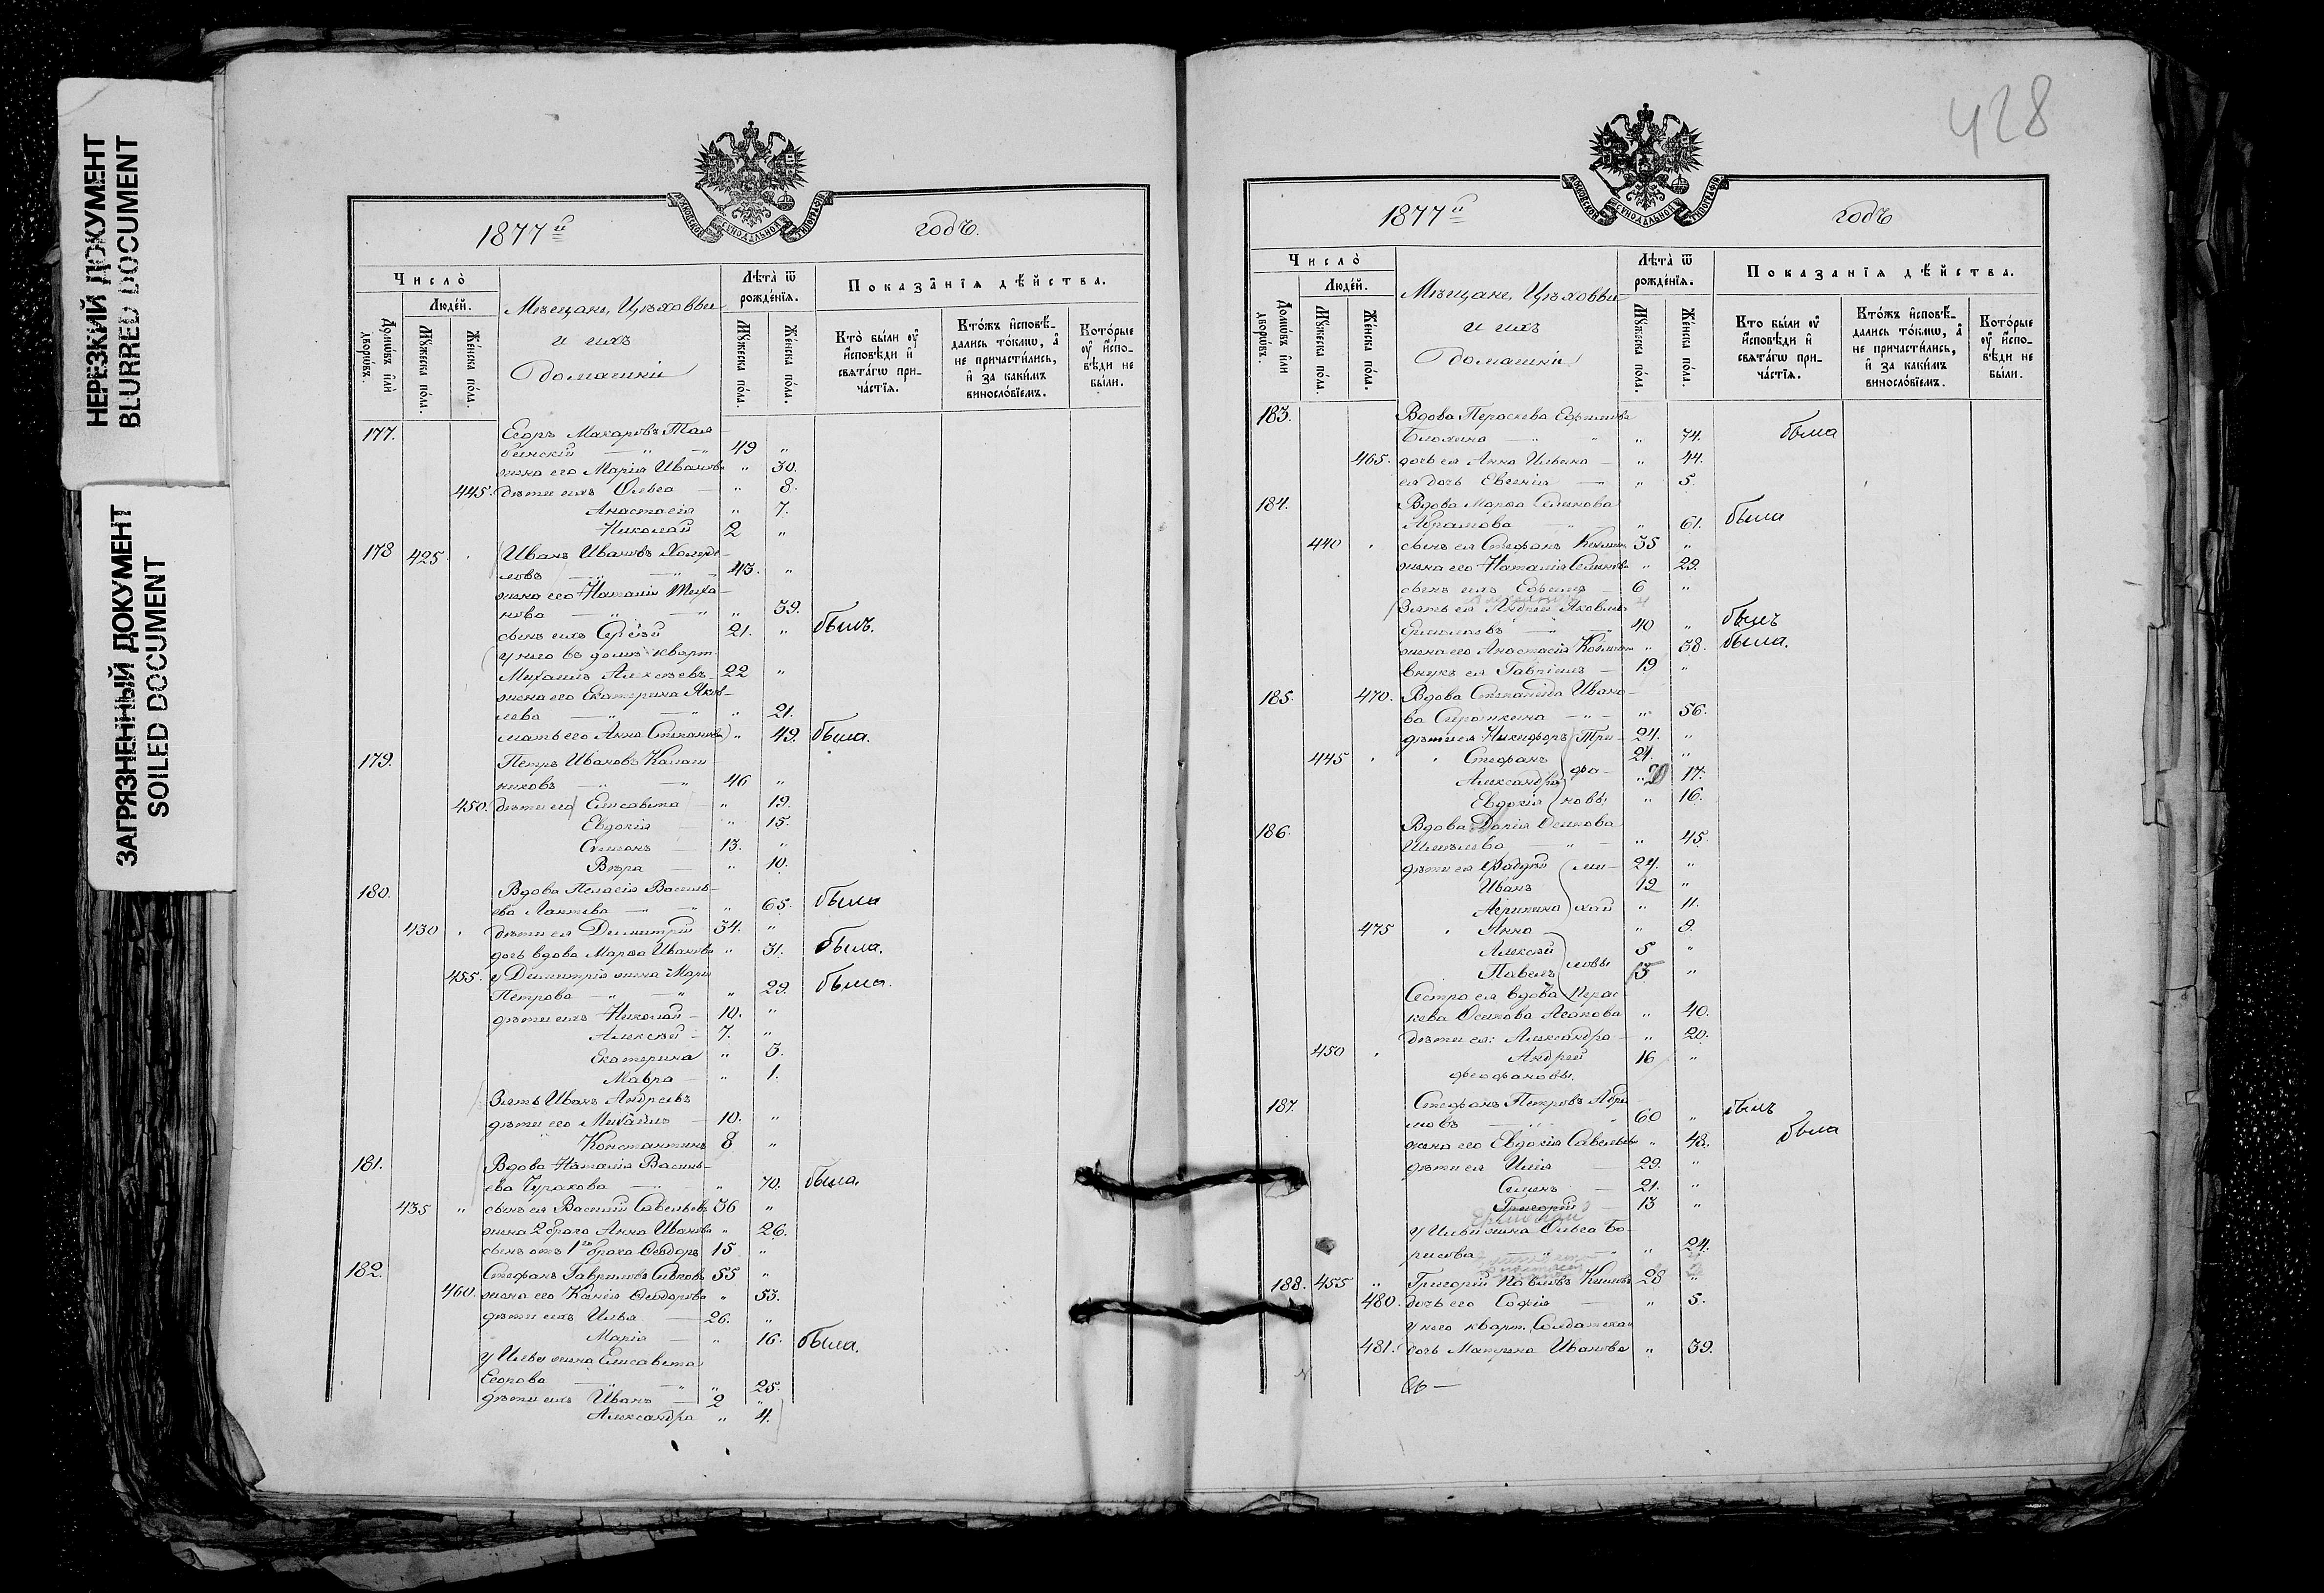 НЕРЕЗКИЙ ДОКУМЕНТ
BLURRED DOCUMENT
ЗАГРЯЗНЕННЫЙ ДОКУМЕНТ
SOILED DOCUMENT
МОСКОВСКОЙ СѴНОДАЛЬНОЙ ТИПОГРАФІИ
1877й годъ.
Число̀
Люде́й.
Домѡ́въ и҆лѝ дворѡ́въ.
Мꙋ́жеска по́ла.
Же́нска по́ла.
Мѣщане, Цѣховыи
и ихъ
домашніи
Лѣта̀ ѿ рожде́нїѧ.
Мꙋ́жеска по́ла.
Же́нска по́ла.
Показа̑нїѧ дѣ́йства.
Кто̀ бы́ли ᲂу҆ и҆сповѣди и҆ свѧта́гѡ прича́стїѧ.
Кто́жъ и҆сповѣ́дались то́кмѡ, а҆ не причасти́лись, и҆ за каки́мъ виносло́вїемъ.
Кото́рые ᲂу҆ и҆сповѣди не бы́ли.
177. Егоръ Макаровъ
бинскій — " — " 49 "
жена его Марія Иванова " 30.
445. дѣти ихъ Ольга — " 8.
Анастасія " 7.
Николай 2 "
178 425. Иванъ Ивановъ
ловъ — " — " 43. "
жена его Наталія Тиха-
нова — " — " " 39.
сынъ ихъ Сергѣй 21. " былъ.
у него въ домѣ кварт.
Михаилъ Алексѣевъ 22 "
жена его Екатерина Яков-
лева — " — " " 21.
мать его Анна Степанова " 49. была.
179. Петръ Ивановъ Калаш-
никовъ — " — " 46 "
450. дѣти его Елисавета " 19.
Евдокія " 15.
Симеонъ — 13. "
Вѣра — " 10.
180. Вдова Пелагія Василь-
ева Лаптева — " — " " 65. была
430 дѣти ея Димитрій 34. "
дочь вдова Марѳа Иванова " 31. была.
455. у Димитрія жена Марія
Петрова — " — " " 29. была.
дѣти ихъ Николай — 10. "
Алексѣй — 7. "
Екатерина " 3.
Мавра — " 1.
Зять Иванъ Андреевъ
дѣти его Михаилъ — 10. "
" Константинъ 8 "
181. Вдова Наталія Василь-
ева Чуракова — " — " 70. была.
435 " сынъ ея Василій Савельевъ 36 "
жена 2 брака Анна Иванова " 26.
сынъ отъ 1го брака Ѳеодоръ 15 "
182. Стефанъ Гавриловъ Сивковъ 55 "
460. жена его Ксенія Ѳеодорова " 53.
дѣти ихъ Илья — 26. "
Марія — " 16. была.
у Ильи жена Елисавета
Егорова — " — " " 25.
дѣти ихъ Иванъ — 2 "
Александра " 4.
428
МОСКОВСКОЙ СѴНОДАЛЬНОЙ ТИПОГРАФІИ
1877й годъ
Число̀
Люде́й.
Домѡ́въ и҆лѝ дворѡ́въ.
Мꙋ́жеска по́ла.
Же́нска по́ла.
Мѣщане, Цѣховыи
и ихъ
домашніи
Лѣта̀ ѿ рожде́нїѧ.
Мꙋ́жеска по́ла.
Же́нска по́ла.
Показанїѧ дѣ́йства.
Кто бы́ли ᲂу҆ и҆сповѣди и҆ свѧта́гѡ прича́стїѧ.
Кто́жъ и҆сповѣ́дались то́кмѡ, а҆ не причасти́лись, и҆ за каки́мъ винословїемъ.
Кото́рые ᲂу҆ и҆сповѣди не бы́ли.
183. Вдова Параскева Ефимова
Блохина — " " 74. была
465. дочь ея Анна Ильина — " 44.
ея дочь Евгенія — " 5.
184. Вдова Марѳа Семенова
Абрамова — " " 61. была
440 сынъ ея Стефанъ 35 "
жена его Наталія Семенова " 29.
сынъ ихъ 6 "
Зять ея Андрей Яковлевъ
Ермолаевъ — " — " 40 " былъ
жена его Анастасія " 38. была.
внукъ ея Гавріилъ — 19 "
185. 470. Вдова Степанида Ивано-
ва Сироткина — " — " 56.
дѣти ея Никифоръ Три- 24. "
445 " Стефанъ 21. "
Александра фо- " 20 17.
Евдокія новы " 16.
186. Вдова Дарія Осипова
Шмелева — " — " 45.
дѣти ея Фаддей ми- 24. "
Иванъ 12 "
Агрипина хай " 11.
475 " Анна " 9.
Алексѣй 5 "
Павелъ ловы 3. "
Сестра ея вдова Парас-
кева Осипова Агапова " 40.
дѣти ея: Александра — " 20.
450 Андрей 16 "
Феофановы.
187. Стефанъ Петровъ Абра-
мовъ — " 60 " былъ
жена его Евдокія Савельева " 48. была
дѣти ея Илія — 29. "
Семенъ — 21. "
Григорій — 13 "
у Ильи жена Ольга Бо-
рисова — " — " " 24.
188. 455 " Григорій Павловъ 28 "
480. дочь его Софія — " 5.
у него кварт. Солдатская
481. дочь Матрена Иванова " 39.